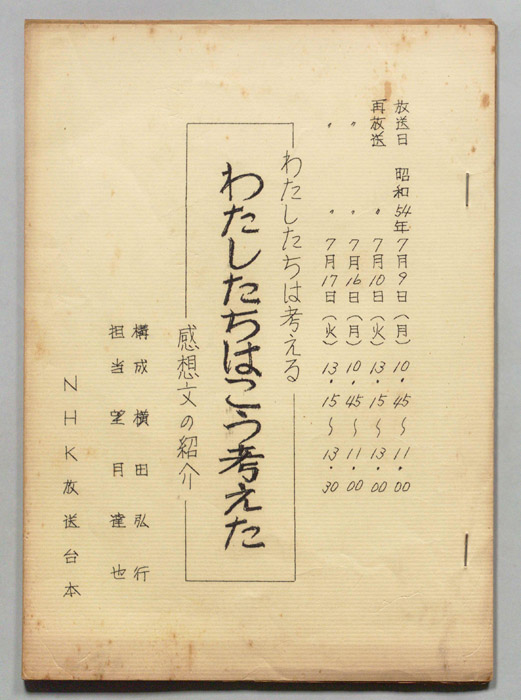 放送日 昭和54年7月9日(月) 10・45〜11・00
再放送 〃 7月10日(火) 13・15〜13・00
〃 〃 7月16日(月) 10・45〜11・00
〃 〃 7月17日(火) 13・15〜13・30
わたしたちは考える
わたしたちはこう考えた
感想文の紹介
構成 横田弘行
担当 望月達也
NHK放送台本